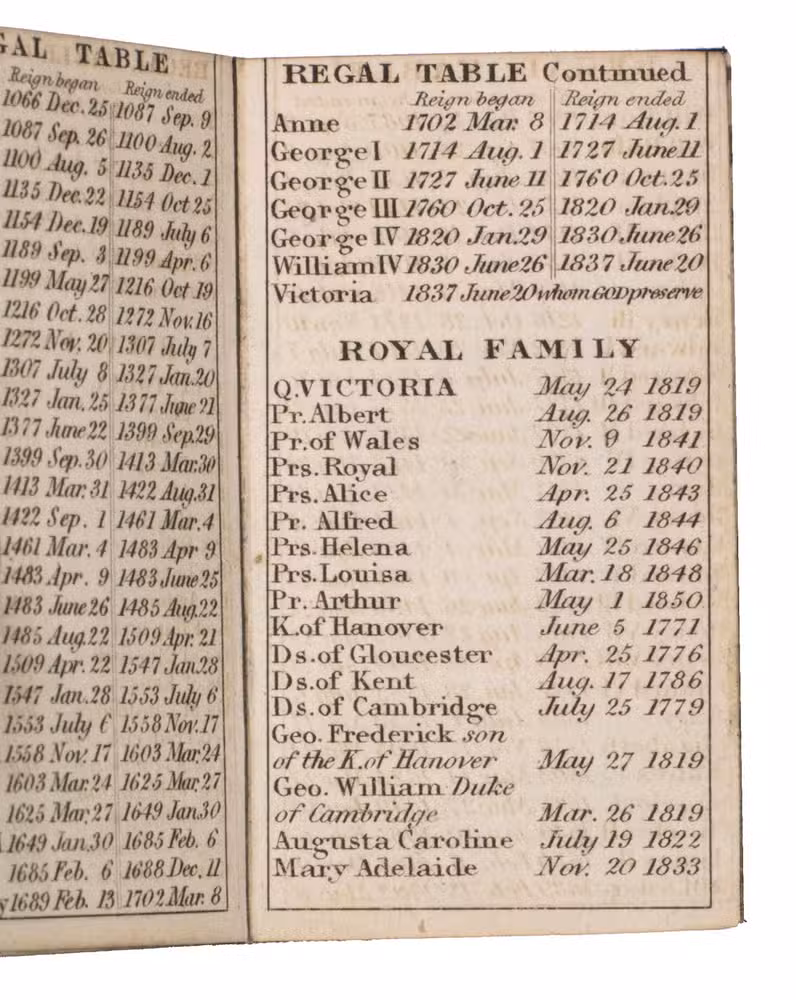 GAL TABLE
Reign began Reign ended
1066 Dec. 25 1087 Sep. 9
1087 Sep. 26 1100 Aug. 2
1100 Aug. 5 1135 Dec. 1
1135 Dec. 22 1154 Oct 25
1154 Dec. 19 1189 July 6
1189 Sep. 3 1199 Apr. 6
1199 May 27 1216 Oct 19
1216 Oct. 28 1272 Nov. 16
1272 Nov. 20 1307 July 7
1307 July 8 1327 Jan. 20
1327 Jan. 25 1377 June 21
1377 June 22 1399 Sep. 29
1399 Sep. 30 1413 Mar. 30
1413 Mar. 31 1422 Aug. 31
1422 Sep. 1 1461 Mar. 4
1461 Mar. 4 1483 Apr 9
1483 Apr. 9 1483 June 25
1483 June 26 1485 Aug. 22
1485 Aug. 22 1509 Apr. 21
1509 Apr. 22 1547 Jan. 28
1547 Jan. 28 1553 July 6
1553 July 6 1558 Nov. 17
1558 Nov. 17 1603 Mar. 24
1603 Mar. 24 1625 Mar. 27
1625 Mar. 27 1649 Jan. 30
1649 Jan. 30 1685 Feb. 6
1685 Feb. 6 1688 Dec. 11
y 1689 Feb. 13 1702 Mar. 8
REGAL TABLE Continued
Reign began Reign ended
Anne 1702 Mar. 8 1714 Aug. 1
George I 1714 Aug. 1 1727 June 11
George II 1727 June 11 1760 Oct. 25
George III 1760 Oct. 25 1820 Jan. 29
George IV 1820 Jan. 29 1830 June 26
William IV 1830 June 26 1837 June 20
Victoria 1837 June 20 whom GOD preserve
ROYAL FAMILY
Q. VICTORIA May 24 1819
Pr. Albert Aug. 26 1819
Pr. of Wales Nov. 9 1841
Prs. Royal Nov. 21 1840
Prs. Alice Apr. 25 1843
Pr. Alfred Aug. 6 1844
Prs. Helena May 25 1846
Prs. Louisa Mar. 18 1848
Pr. Arthur May 1 1850
K. of Hanover June 5 1771
Ds. of Gloucester Apr. 25 1776
Ds. of Kent Aug. 17 1786
Ds. of Cambridge July 25 1779
Geo. Frederick son
of the K. of Hanover May 27 1819
Geo. William Duke
of Cambridge Mar. 26 1819
Augusta Caroline July 19 1822
Mary Adelaide Nov. 20 1833